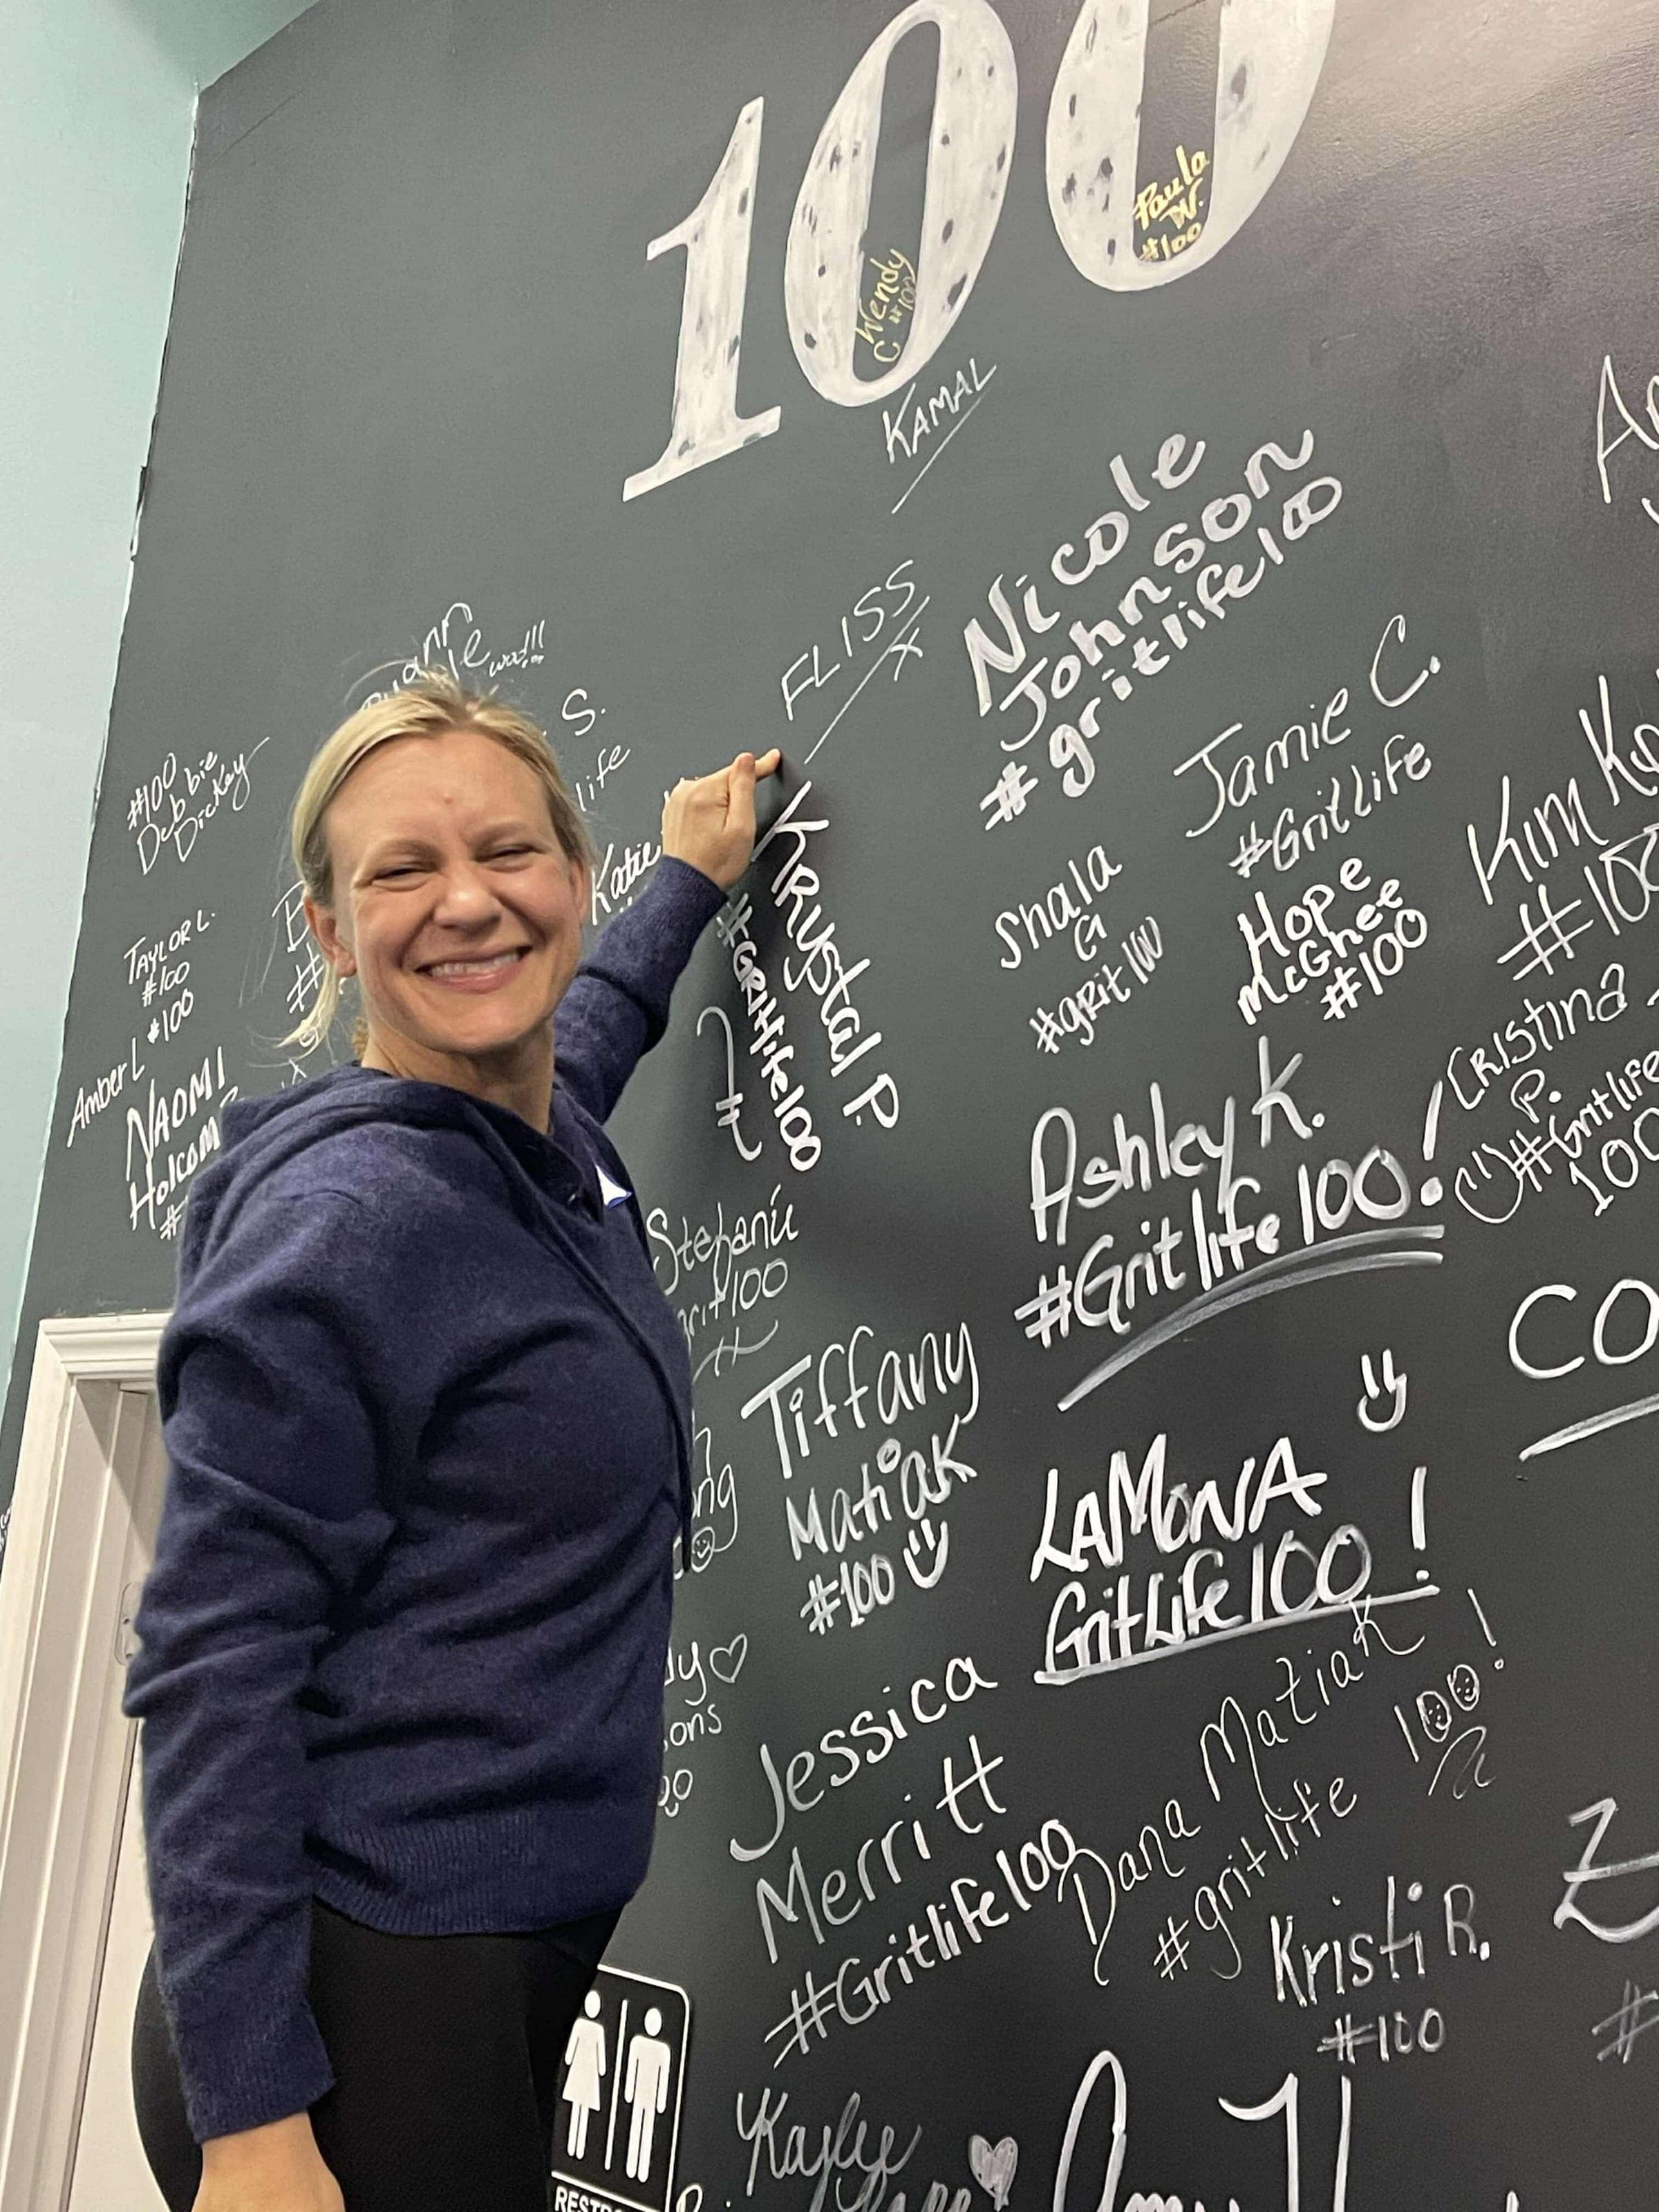 100
Paula
DV.
#100
Wendy
C #100
KAMAL
Nicole
Johnson
#gritlife100
FLISS
X
wod!!!
S.
life
#100
Debbie
Dickey
Katie
Jamie C.
#GritLife
Kim
#100
KRystal P.
#GRitlife100
Shala
G
#gRit100
Hope
McGhee
#100
TAYLOR L.
#100
Amber L #100
NAOMI
Cristina
P.
#Gritlife
100
Ashley K.
#Gritlife 100!
Stefanii
grit100
Tiffany
Matiak
#100
LAMONA
GritLife100!
CO
Jessica
Merritt
#Gritlife100
Dana Matiak
#gritlife 100!
Kristi R.
#100
Kaylee
Amy
RESTR